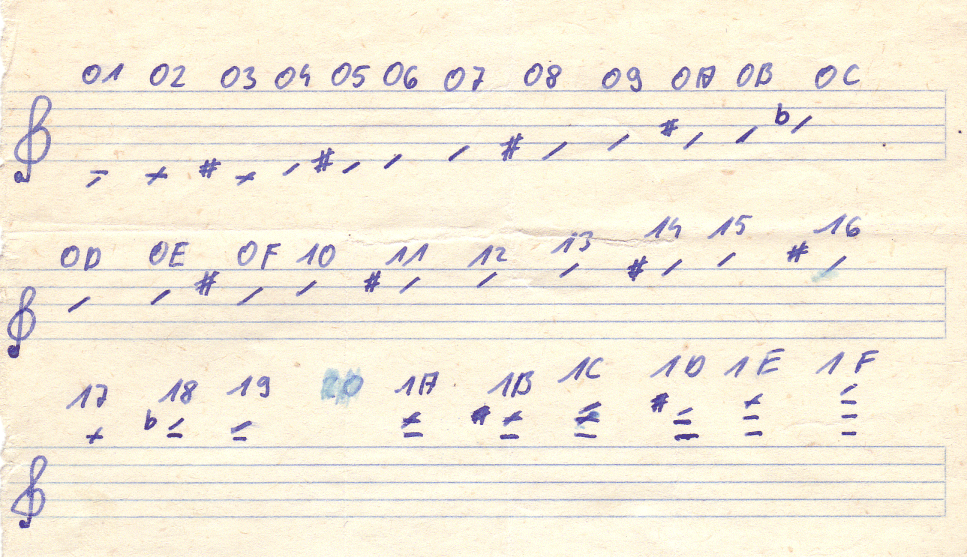 01 02 03 04 05 06 07 08 09 0A 0B 0C
0D 0E 0F 10 11 12 13 14 15 16
17 18 19 20 1A 1B 1C 1D 1E 1F